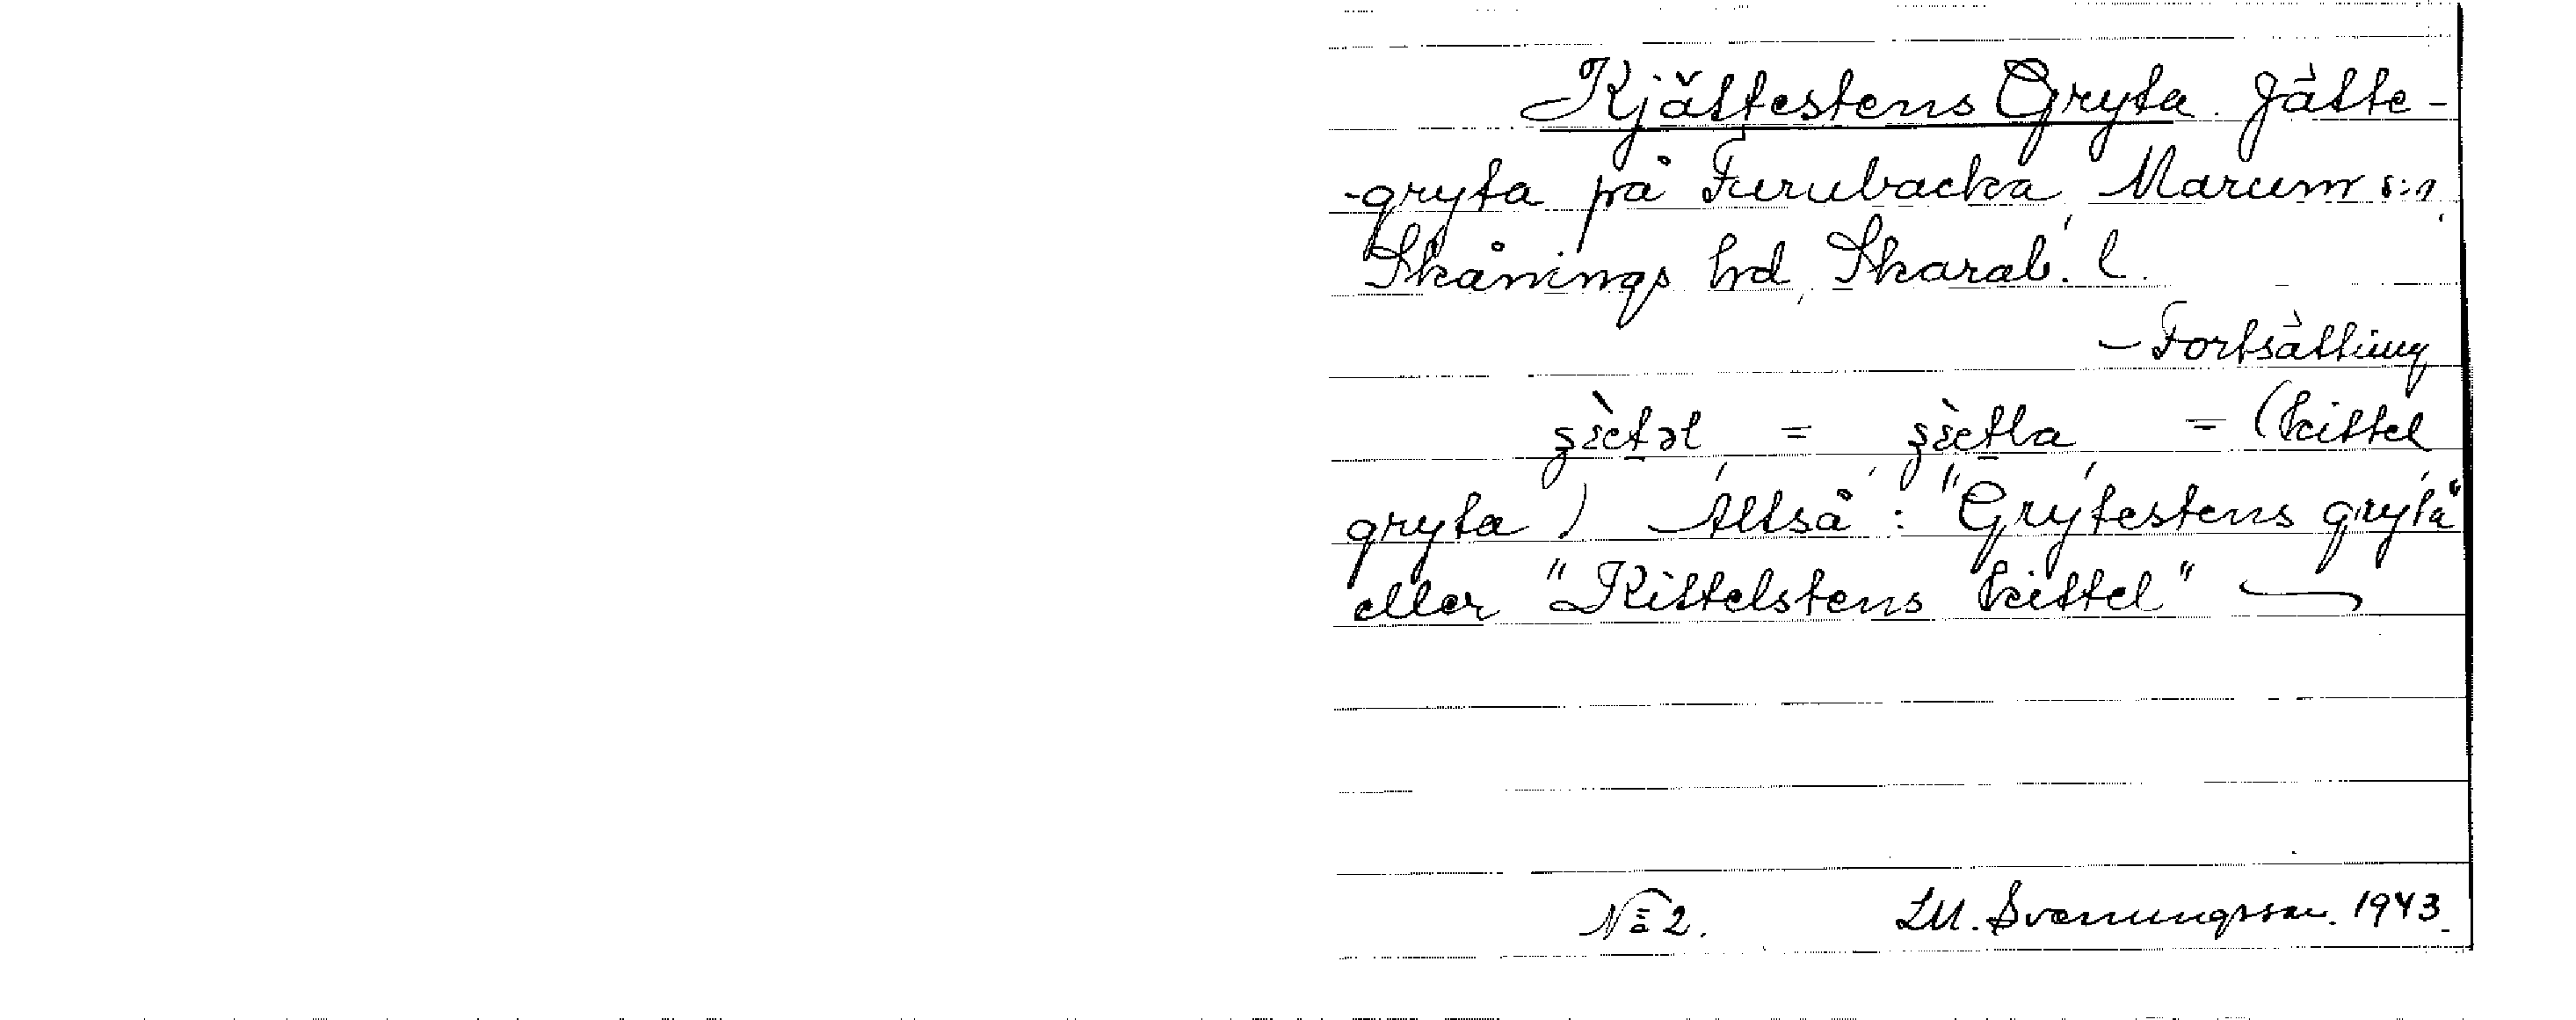 Kjättestens Gryta. Jätte-
-gryta på Furubacka, Marum s:n,
Skånings hrd, Skarab. l.
- Fortsättning
= = (kittel,
gryta) Alltså: "Grytestens gryta"
eller "Kittelstens kittel"
No 2. LM. Svenungsson. 1943.